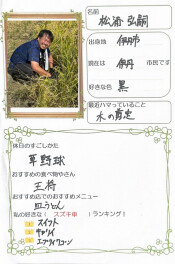 名前
松浦 弘嗣
出身地
伊丹市
現在は
伊丹
市民です
好きな色
黒
最近ハマっていること
木の剪定
休日のすごしかた
草野球
おすすめの食べ物やさん
王将
おすすめ店でのおすすめメニュー
皿うどん
私の好きな( スズキ車 )ランキング!
1 スイフト
2 キャリイ
3 エブリイワゴン